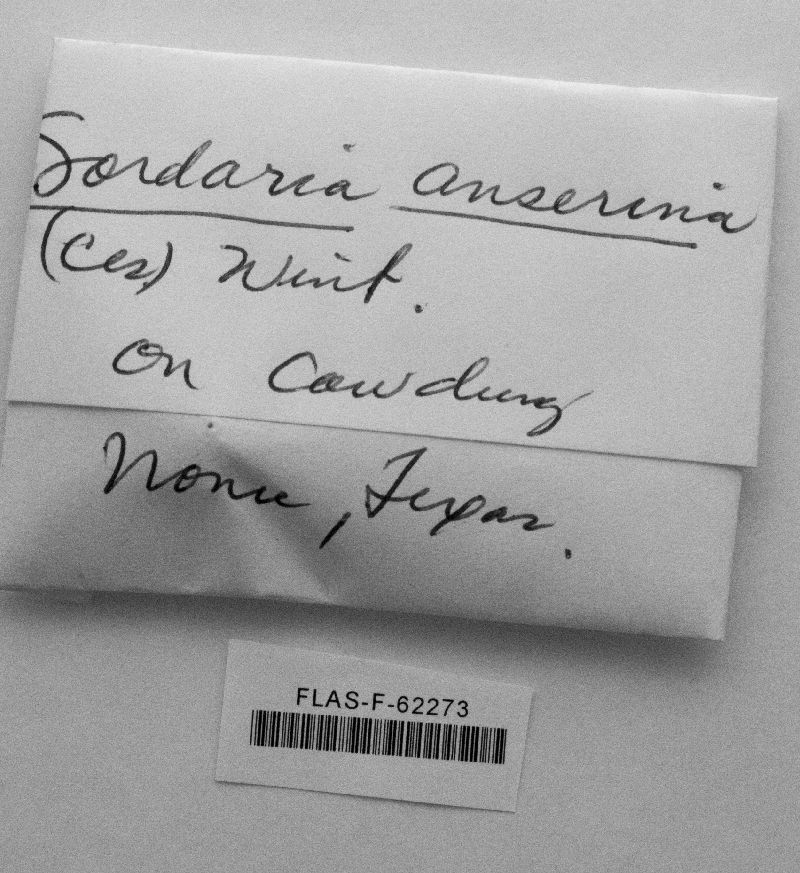 Sordaria anserina
(Ces.) Wint.
on Cowdung
Nome, Texas.
FLAS-F-62273